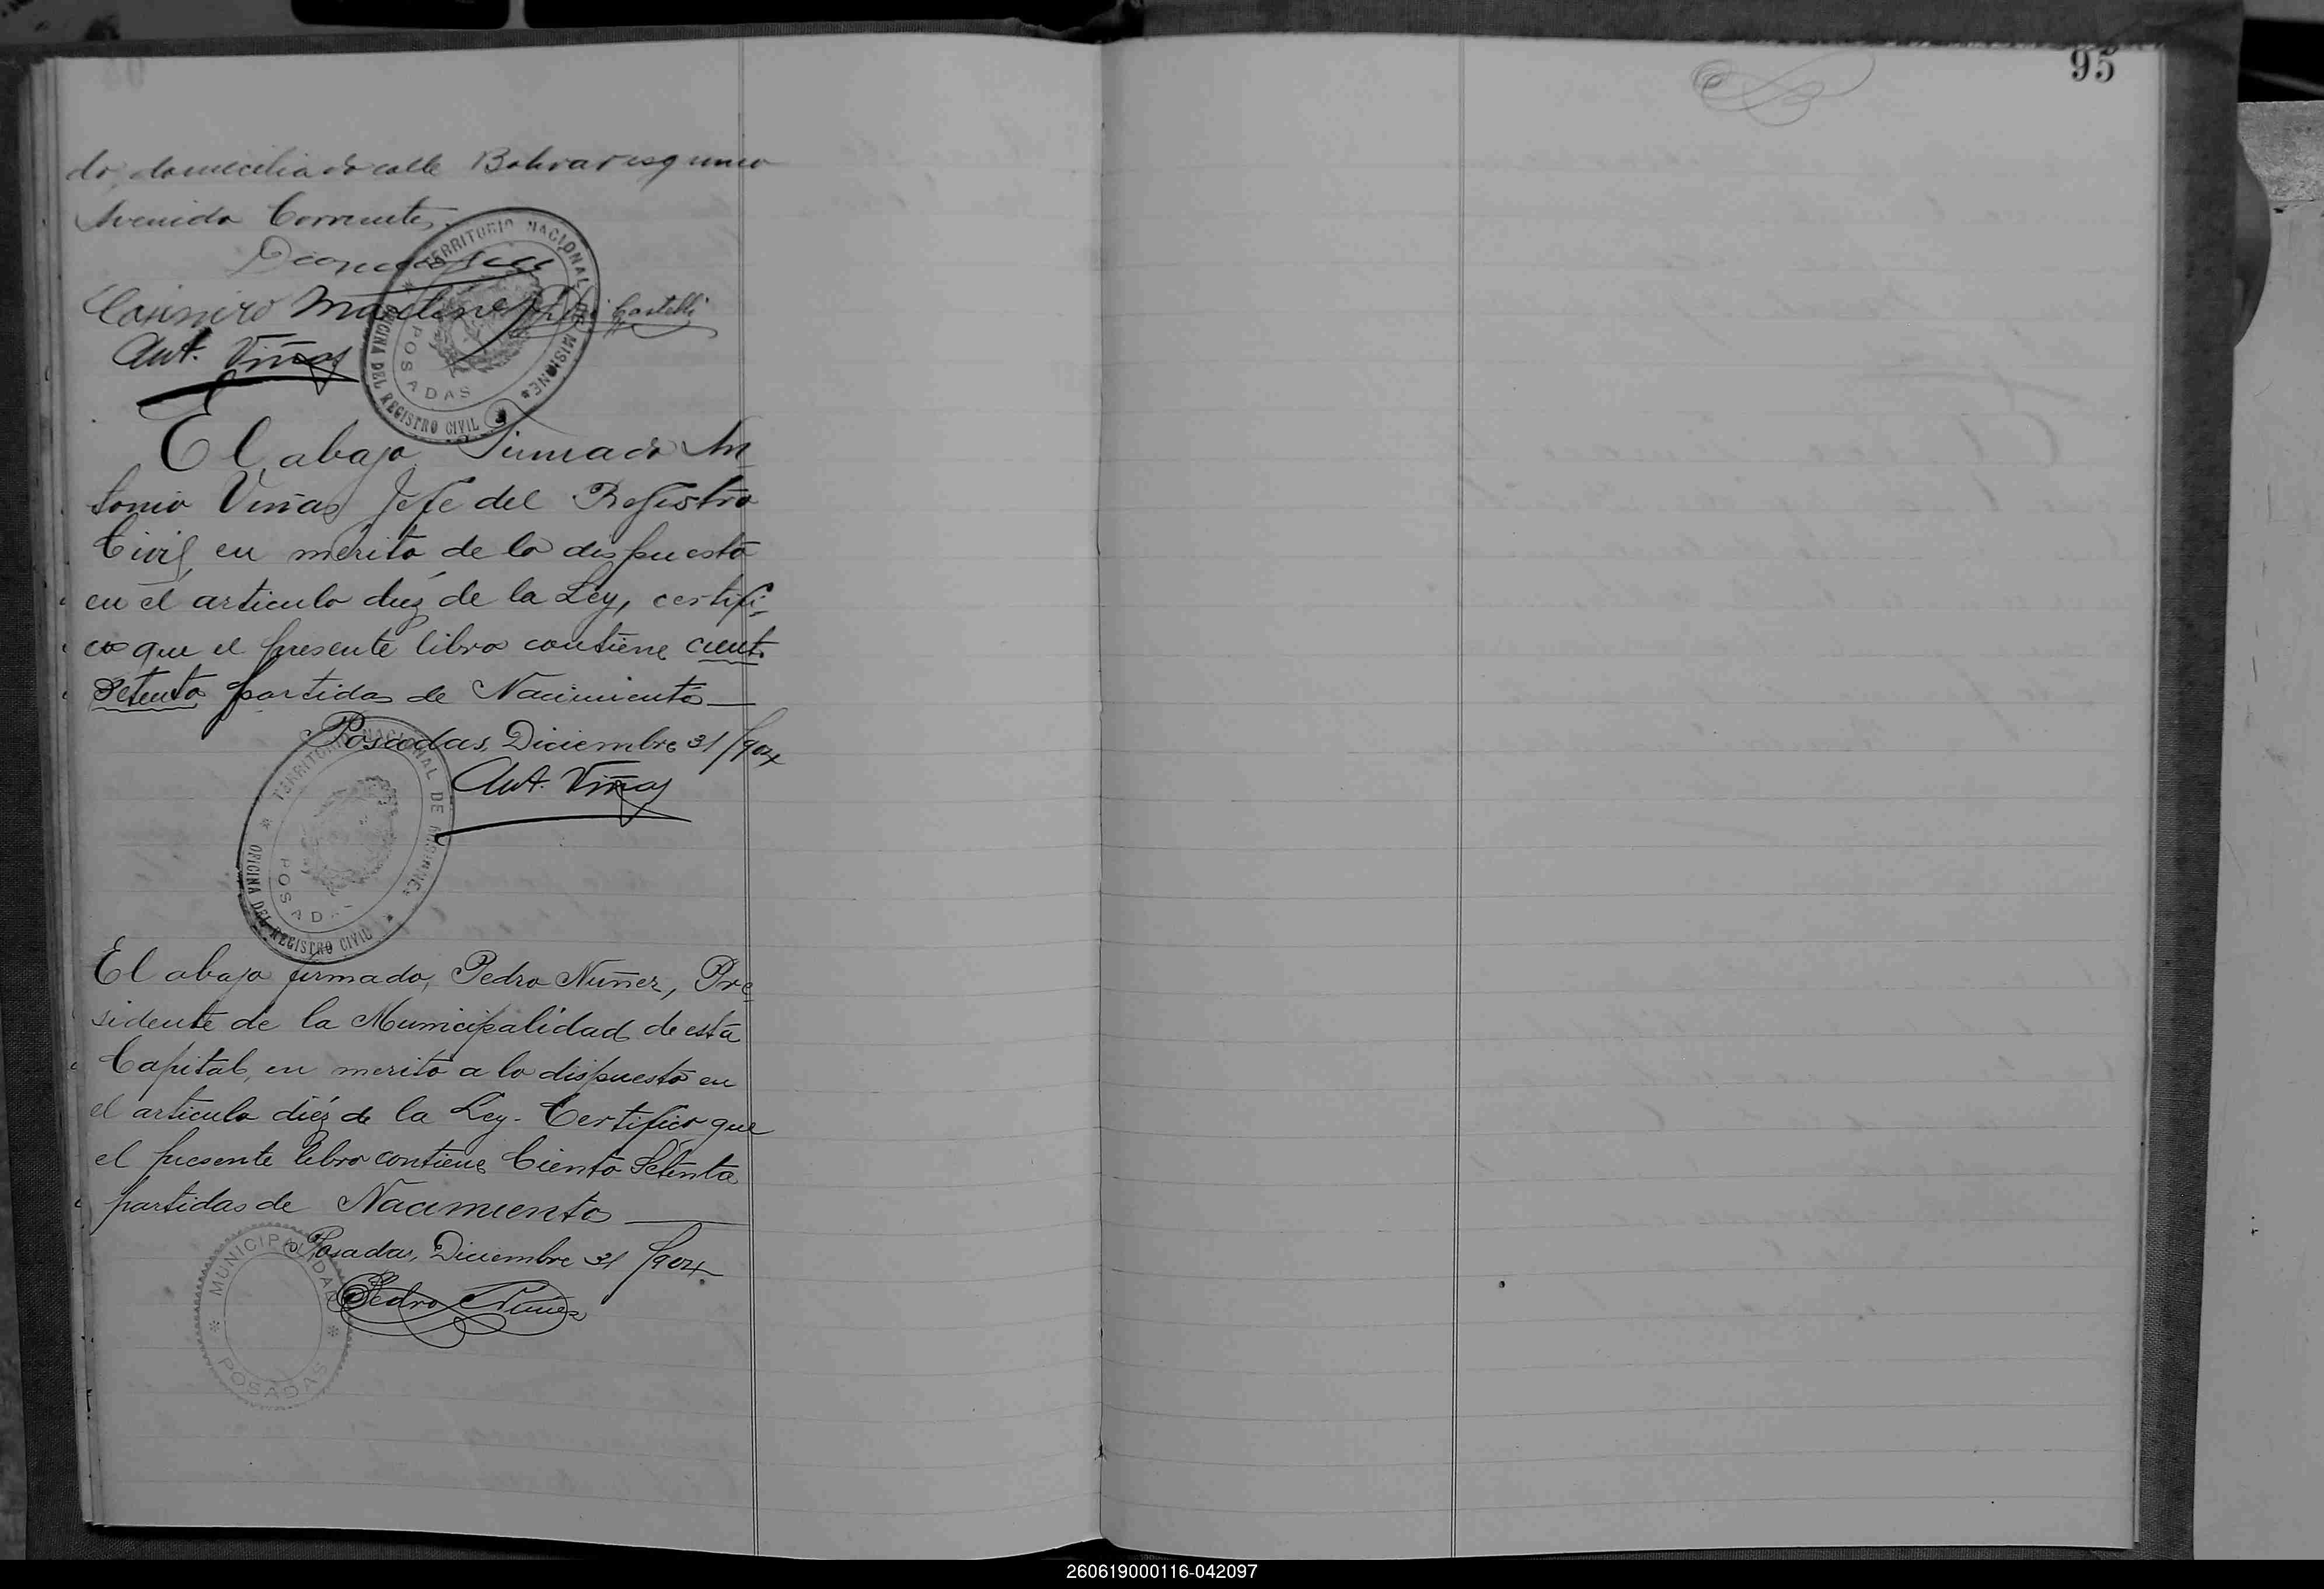 95
do, domiciliado calle Bolivar esquina
Avenida Corrientes.
Casimiro Martinez Castelli
Ant. Viñas
TERRITORIO NACIONAL DE MISIONES
OFICINA DEL REGISTRO CIVIL
POSADAS
El abajo firmado An
tonio Viñas Jefe del Registro
Civil, en mérito de lo dispuesto
en el articulo diez de la Ley, certifi-
co que el presente libro contiene cient.
Setenta partidas de Nacimiento
Posadas, Diciembre 31/904
Ant. Viñas
TERRITORIO NACIONAL DE MISIONES
OFICINA DEL REGISTRO CIVIL
POSADAS
El abajo firmado, Pedro Nuñez, Pre
sidente de la Municipalidad de esta
Capital, en merito a lo dispuesto en
el articulo diéz de la Ley - Certifico que
el presente libro contiene Ciento Setenta
partidas de Nacimiento
Posadas, Diciembre 31/904
Pedro Nuñez
MUNICIPALIDAD
POSADAS
260619000116-042097